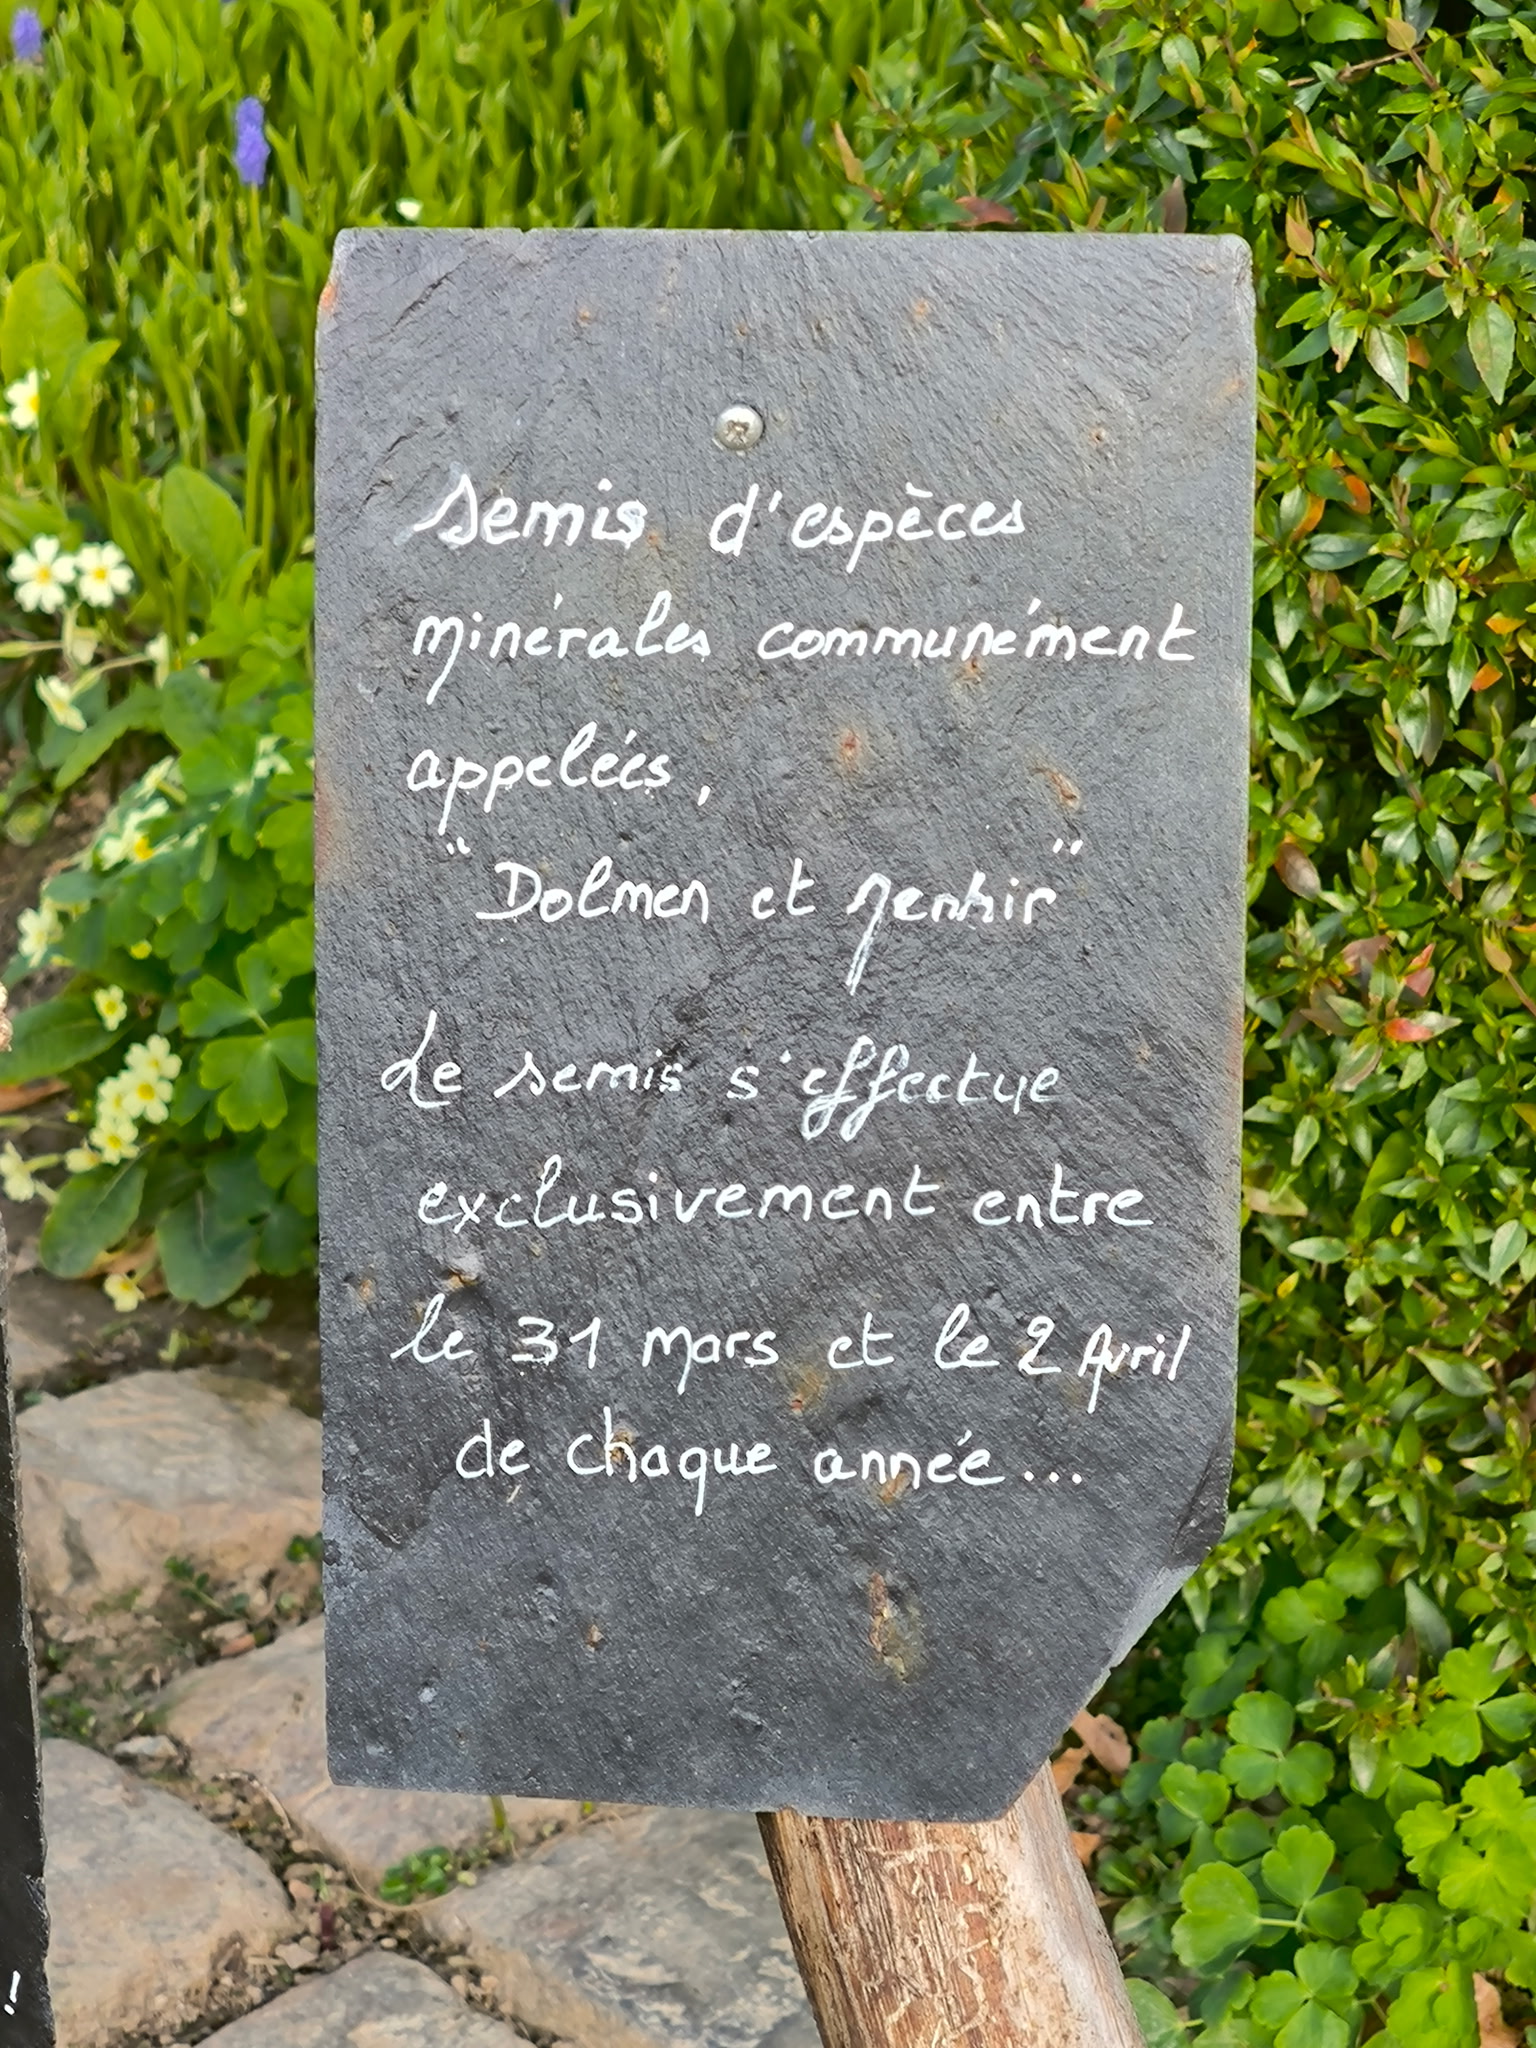 Semis d'espèces
minérales communément
appelées,
"Dolmen et Menhir"
Le semis s'effectue
exclusivement entre
le 31 Mars et le 2 Avril
de chaque année...
!